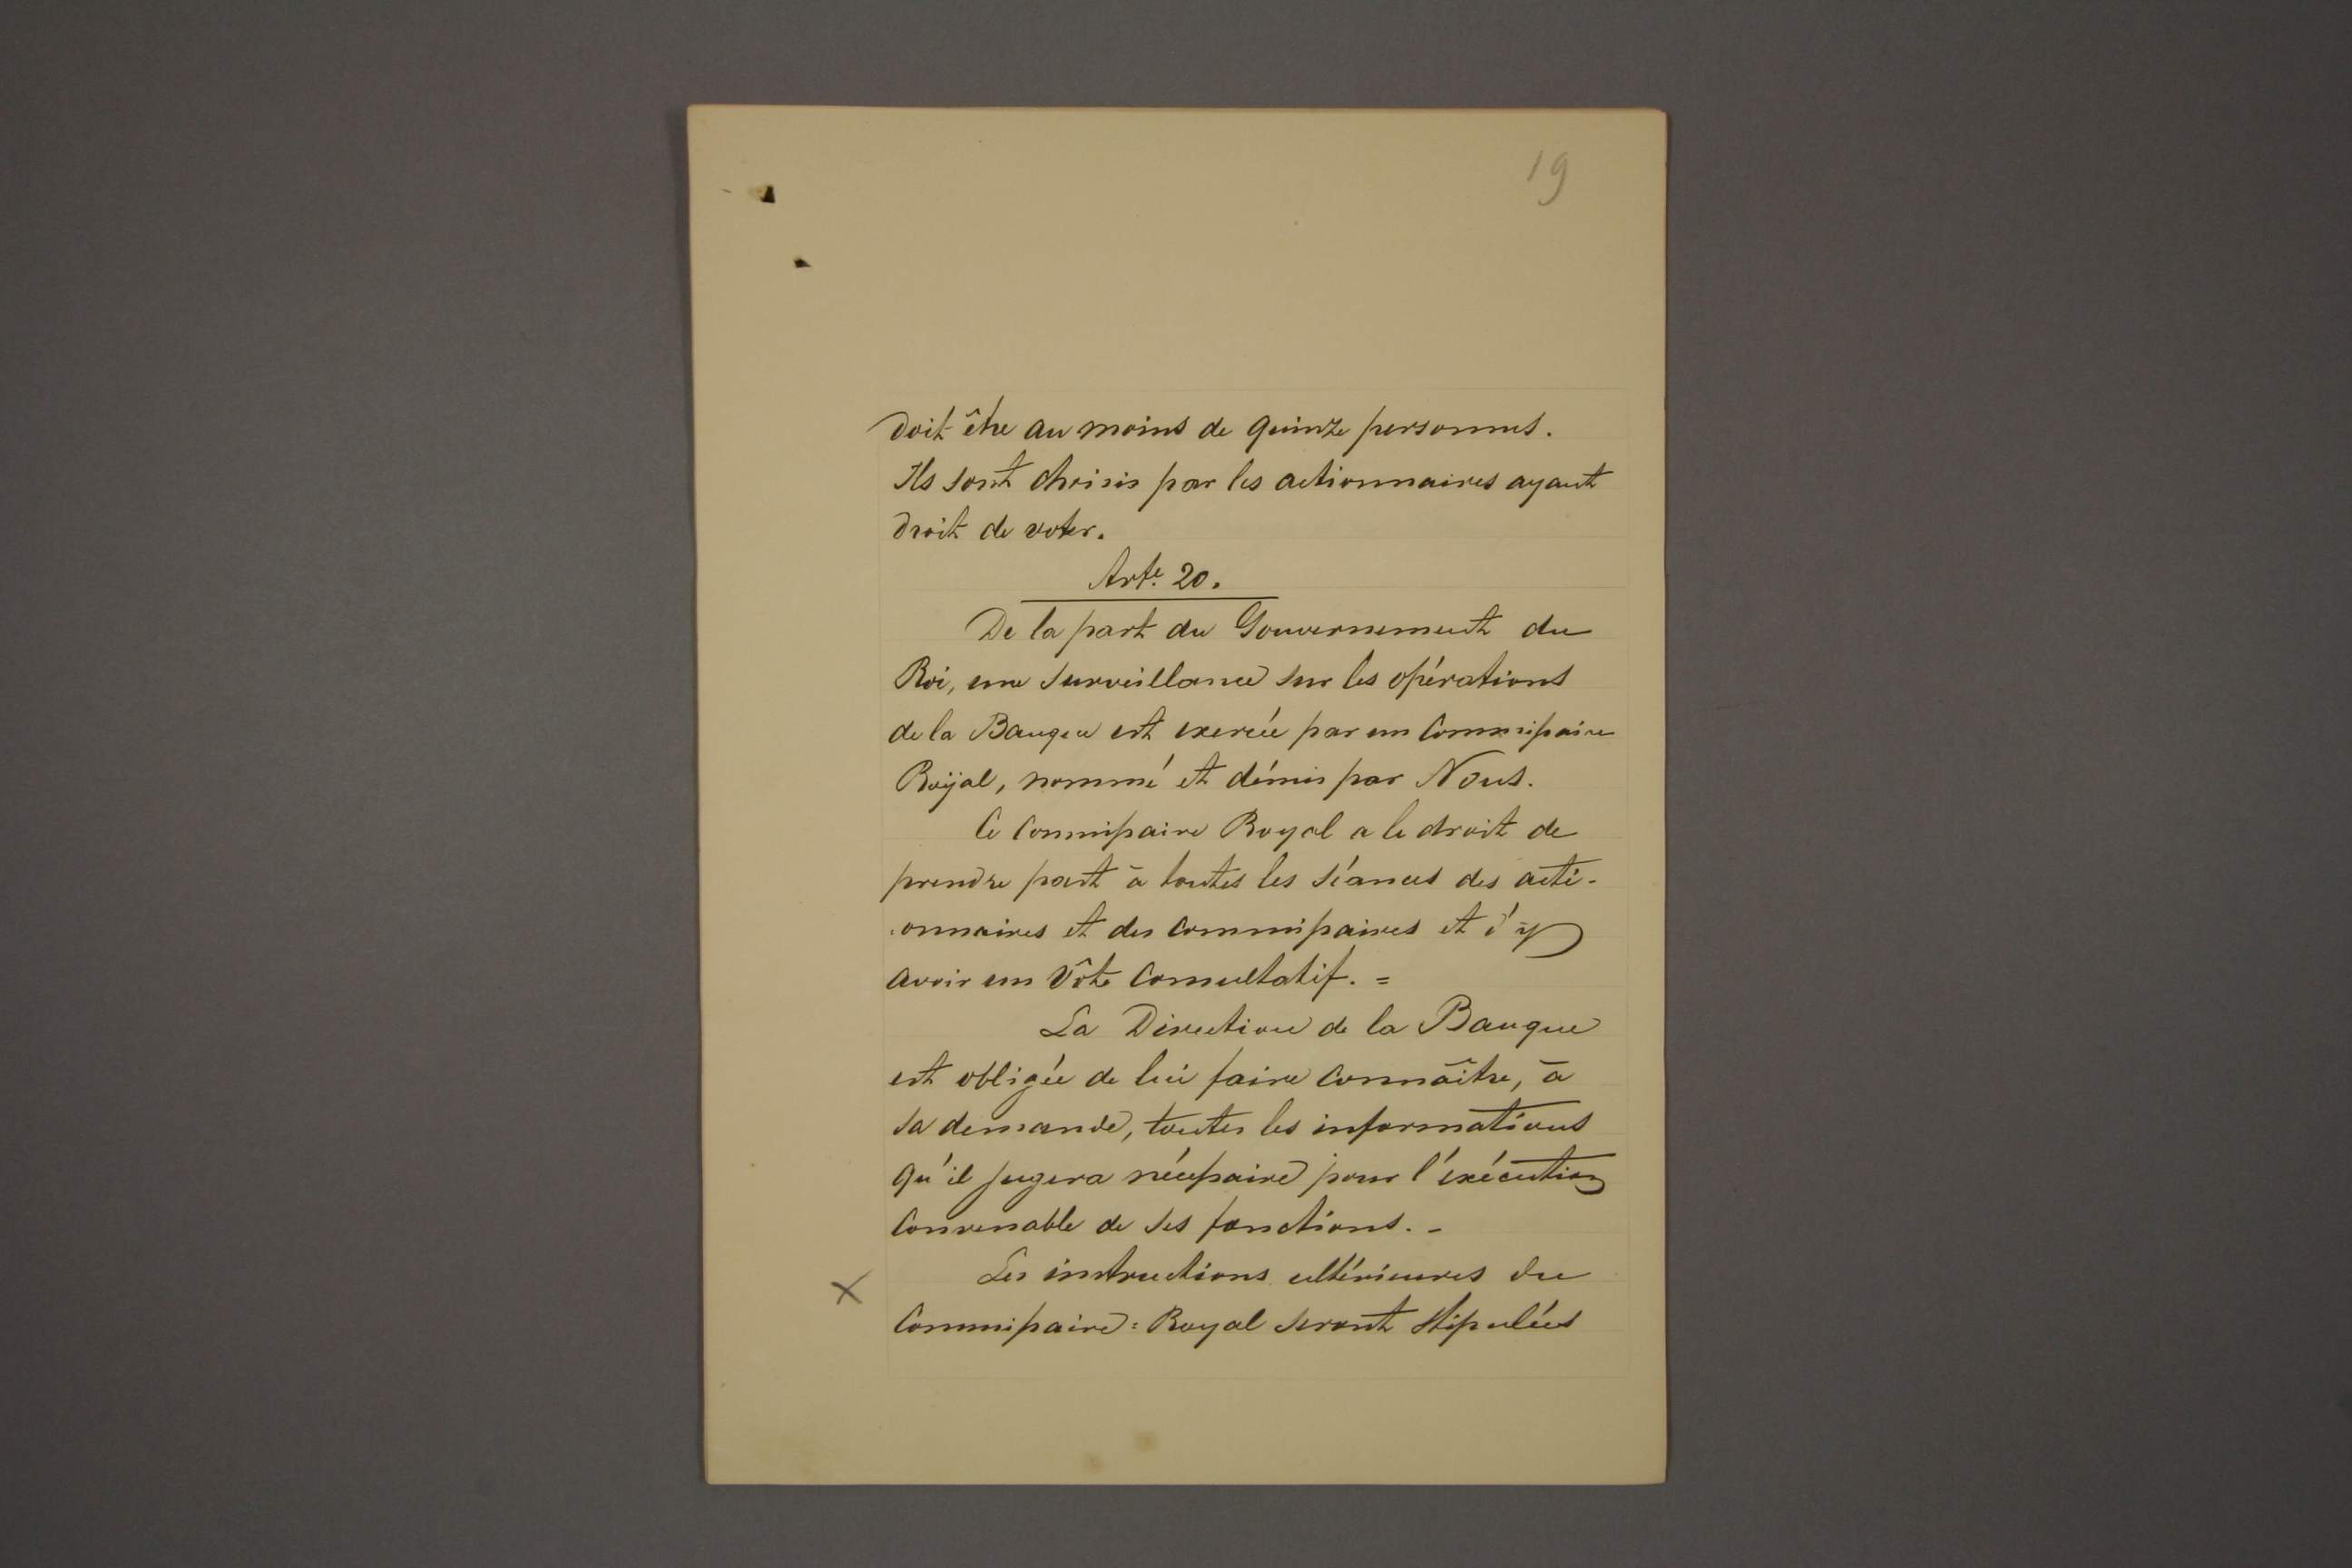 19
doit être au moins de quinze personnes.
Ils sont choisis par les actionnaires ayant
droit de voter.
Arte. 20.
De la part du Gouvernement du
Roi, une surveillance sur les opérations
de la Banque est exercée par un Commissaire
Roÿal, nommé et démis par Nous.
Ce Commissaire Royal a le droit de
prendre part à toutes les séances des acti-
onnaires et des commissaires et d'y
avoir un Vôte Consultatif. =
La Direction de la Banque
est obligée de lui faire Connaître, à
sa demande, toutes les informations
qu'il jugera nécessaire pour l'exécution
Convenable de ses fonctions. -
Les instructions ultérieures du
X
Commissaire = Royal seront stipulées